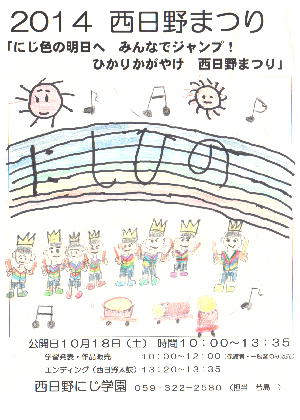 2014 西日野まつり
「にじ色の明日へ みんなでジャンプ！
ひかりかがやけ 西日野まつり」
にしひの
公開日10月18日（土） 時間10：00～13：35
学習発表・作品販売 10：00～12：00
エンディング（西日野太鼓） 13：20～13：35
西日野にじ学園 059-322-2580 （担当